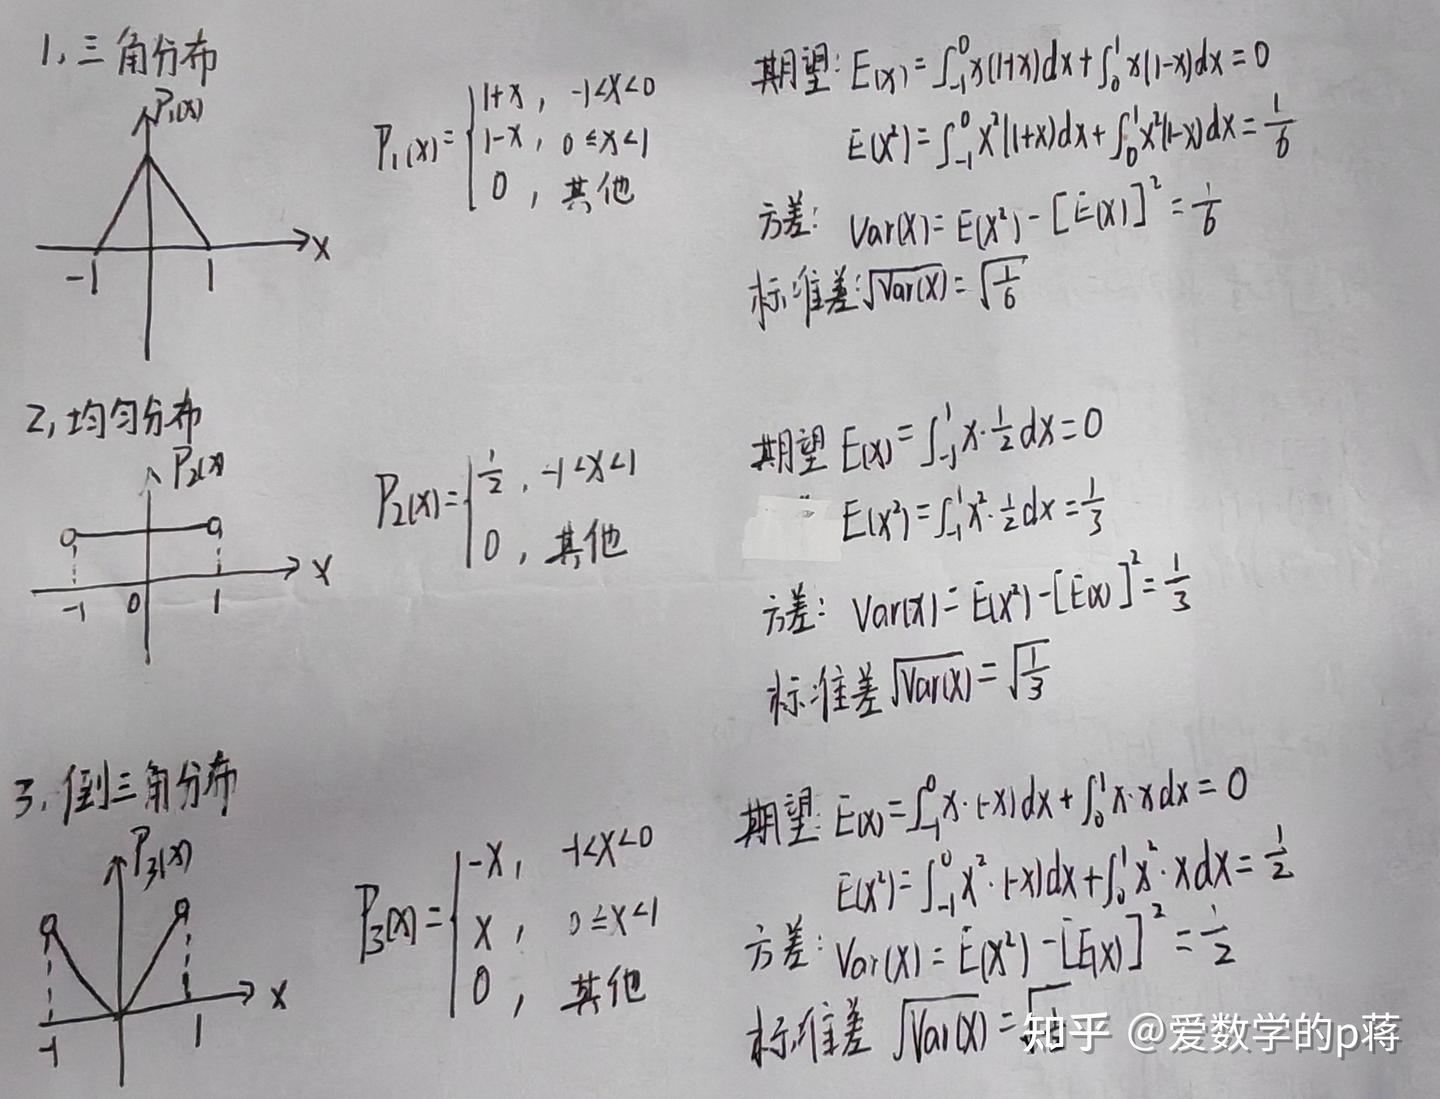 1, 三角分布
P₁(x)
-1 1 x
P₁(x)= { 1+x, -1<x<0
1-x, 0≤x<1
0, 其他
期望: E(x)=∫₋₁⁰x(1+x)dx+∫₀¹x(1-x)dx=0
E(x²)=∫₋₁⁰x²(1+x)dx+∫₀¹x²(1-x)dx=1/6
方差: Var(x)=E(x²)-[E(x)]²=1/6
标准差:√Var(x)=√(1/6)
2, 均匀分布
P₂(x)
-1 0 1 x
P₂(x)= { 1/2, -1<x<1
0, 其他
期望 E(x)=∫₋₁¹x·1/2dx=0
E(x²)=∫₋₁¹x²·1/2dx=1/3
方差: Var(x)=E(x²)-[E(x)]²=1/3
标准差 √Var(x)=√(1/3)
3, 倒三角分布
P₃(x)
-1 1 x
P₃(x)= { -x, -1<x<0
x, 0≤x<1
0, 其他
期望: E(x)=∫₋₁⁰x·(-x)dx+∫₀¹x·xdx=0
E(x²)=∫₋₁⁰x²·(-x)dx+∫₀¹x²·xdx=1/2
方差: Var(x)=E(x²)-[E(x)]²=1/2
标准差 √Var(x)=
知乎 @爱数学的p蒋